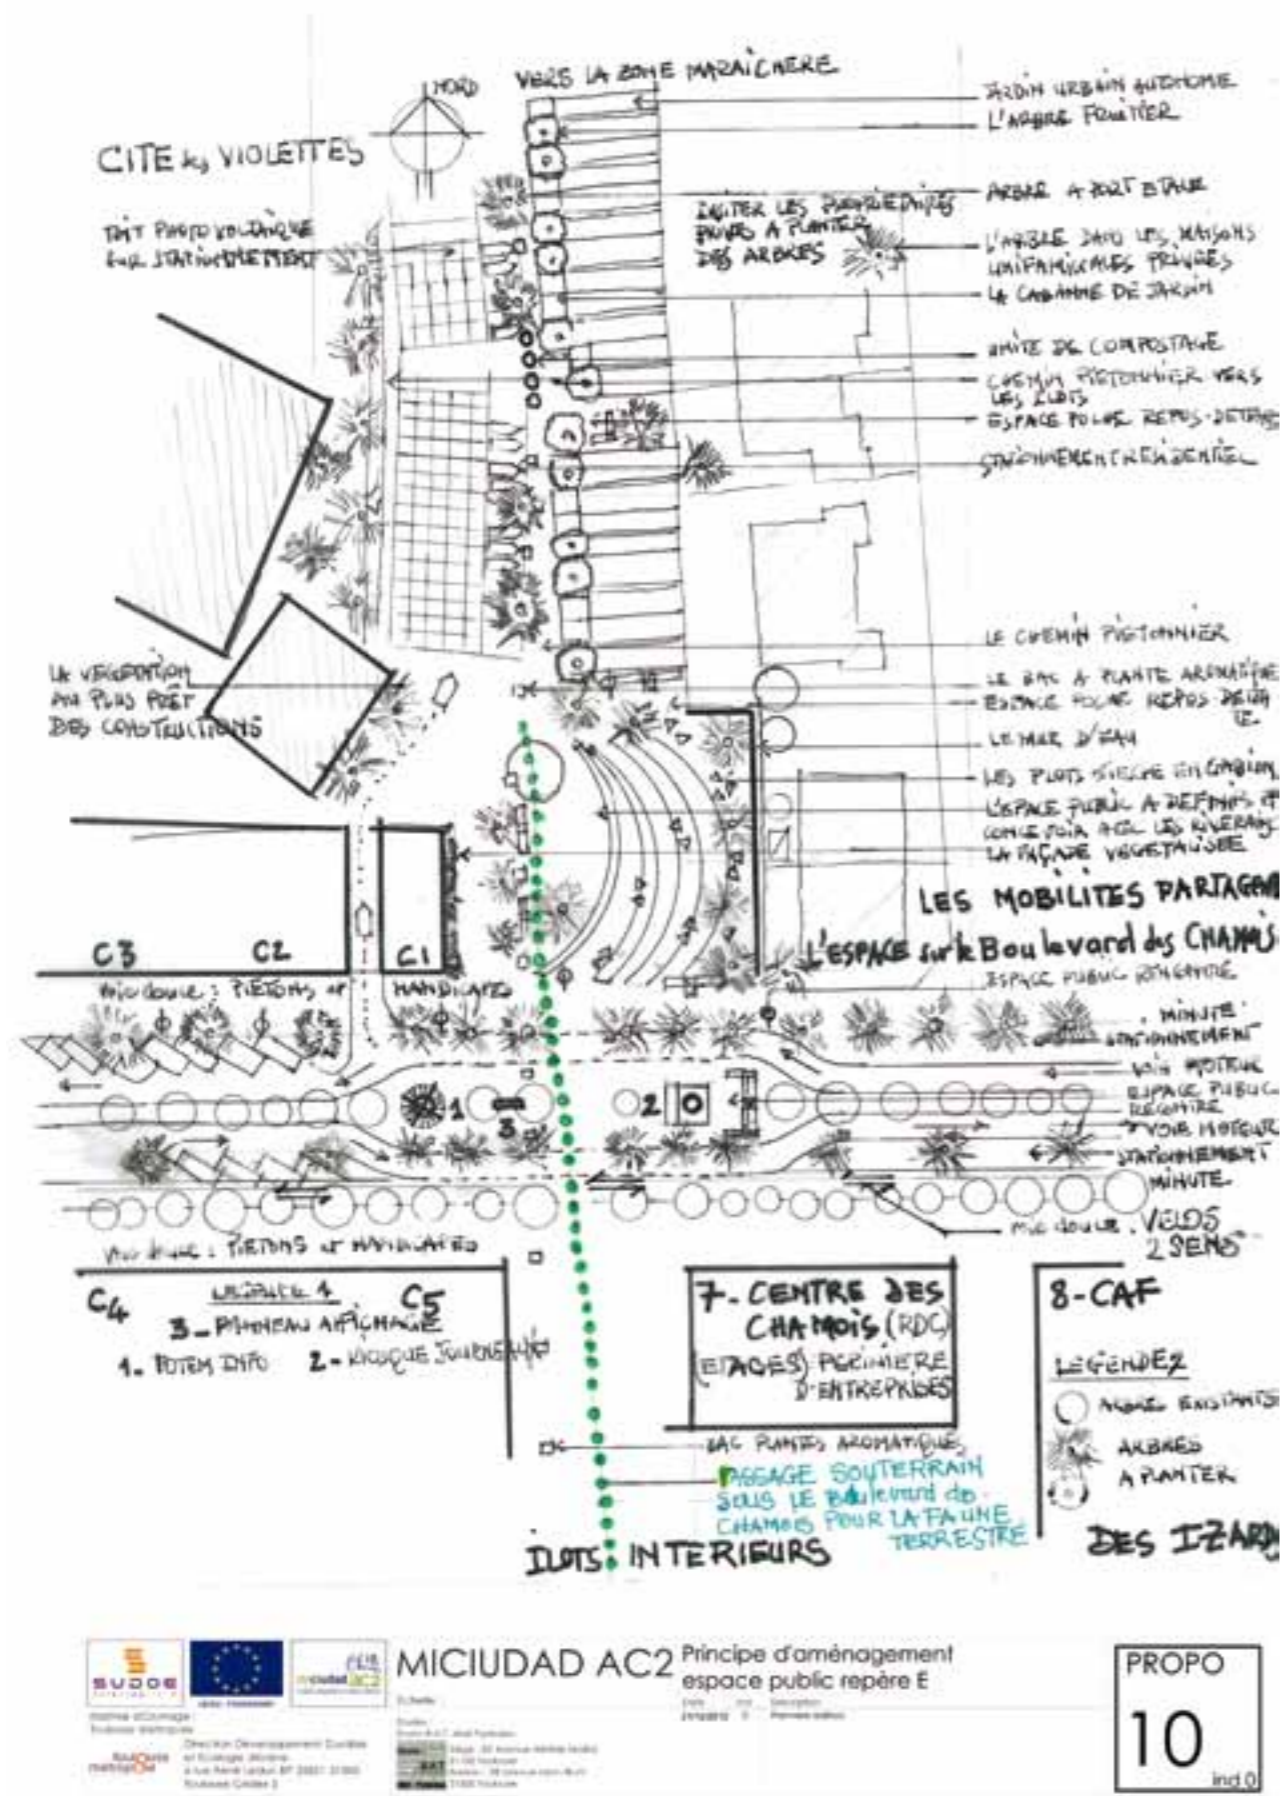 NORD
VERS LA ZONE MARAÎCHERE
CITE des VIOLETTES
TOIT PHOTOVOLTAÏQUE
SUR STATIONNEMENT
JARDIN URBAIN AUTONOME
L'ARBRE FRUITIER
ARBRE A PORT ETALE
INCITER LES PROPRIETAIRES
PRIVES A PLANTER
DES ARBRES
L'ARBRE DANS LES MAISONS
UNIFAMILIALES PRIVEES
LA CABANNE DE JARDIN
UNITE DE COMPOSTAGE
CHEMIN PIETONNIER VERS
LES ILOTS
ESPACE POCHE REPOS-DETENTE
STATIONNEMENT RESIDENTIEL
LE CHEMIN PIETONNIER
LE BAC A PLANTE AROMATIQUE
ESPACE POCHE REPOS DETEN
TE
LE MUR D'EAU
LES PLOTS SIEGE EN GABION
L'ESPACE PUBLIC A DEFINIR ET
CONCEVOIR AVEC LES RIVERAINS
LA FAÇADE VEGETALISEE
LA VEGETATION
AU PLUS PRET
DES CONSTRUCTIONS
LES MOBILITES PARTAGENT
L'ESPACE sur le Boulevard des CHAMOIS
ESPACE PUBLIC RENCONTRE
C3 C2 C1
voie douce : PIETONS et HANDICAPES
MINUTE
STATIONNEMENT
VOIE MOTEUR
ESPACE PUBLIC
RENCONTRE
VOIE MOTEUR
STATIONNEMENT
MINUTE
1 3 2
voie douce : VELOS
2 SENS
voie douce : PIETONS et HANDICAPES
C4 C5
3 - PANNEAU AFFICHAGE
1. TOTEM INFO 2 - KIOSQUE JOURNEAUX
7 - CENTRE DES
CHAMOIS (RDC)
(ETAGES) PEPINIERE
D'ENTREPRISES
8 - CAF
LEGENDE
ARBRES EXISTANTS
ARBRES
A PLANTER
BAC PLANTES AROMATIQUES
PASSAGE SOUTERRAIN
SOUS LE Boulevard des
CHAMOIS POUR LA FAUNE
TERRESTRE
ILOTS INTERIEURS
DES IZARDS
SUDOE
MICIUDAD AC2
Principe d'aménagement
espace public repère E
PROPO
10
ind 0
toulouse
métropole
Direction Développement Durable
et Ecologie Urbaine